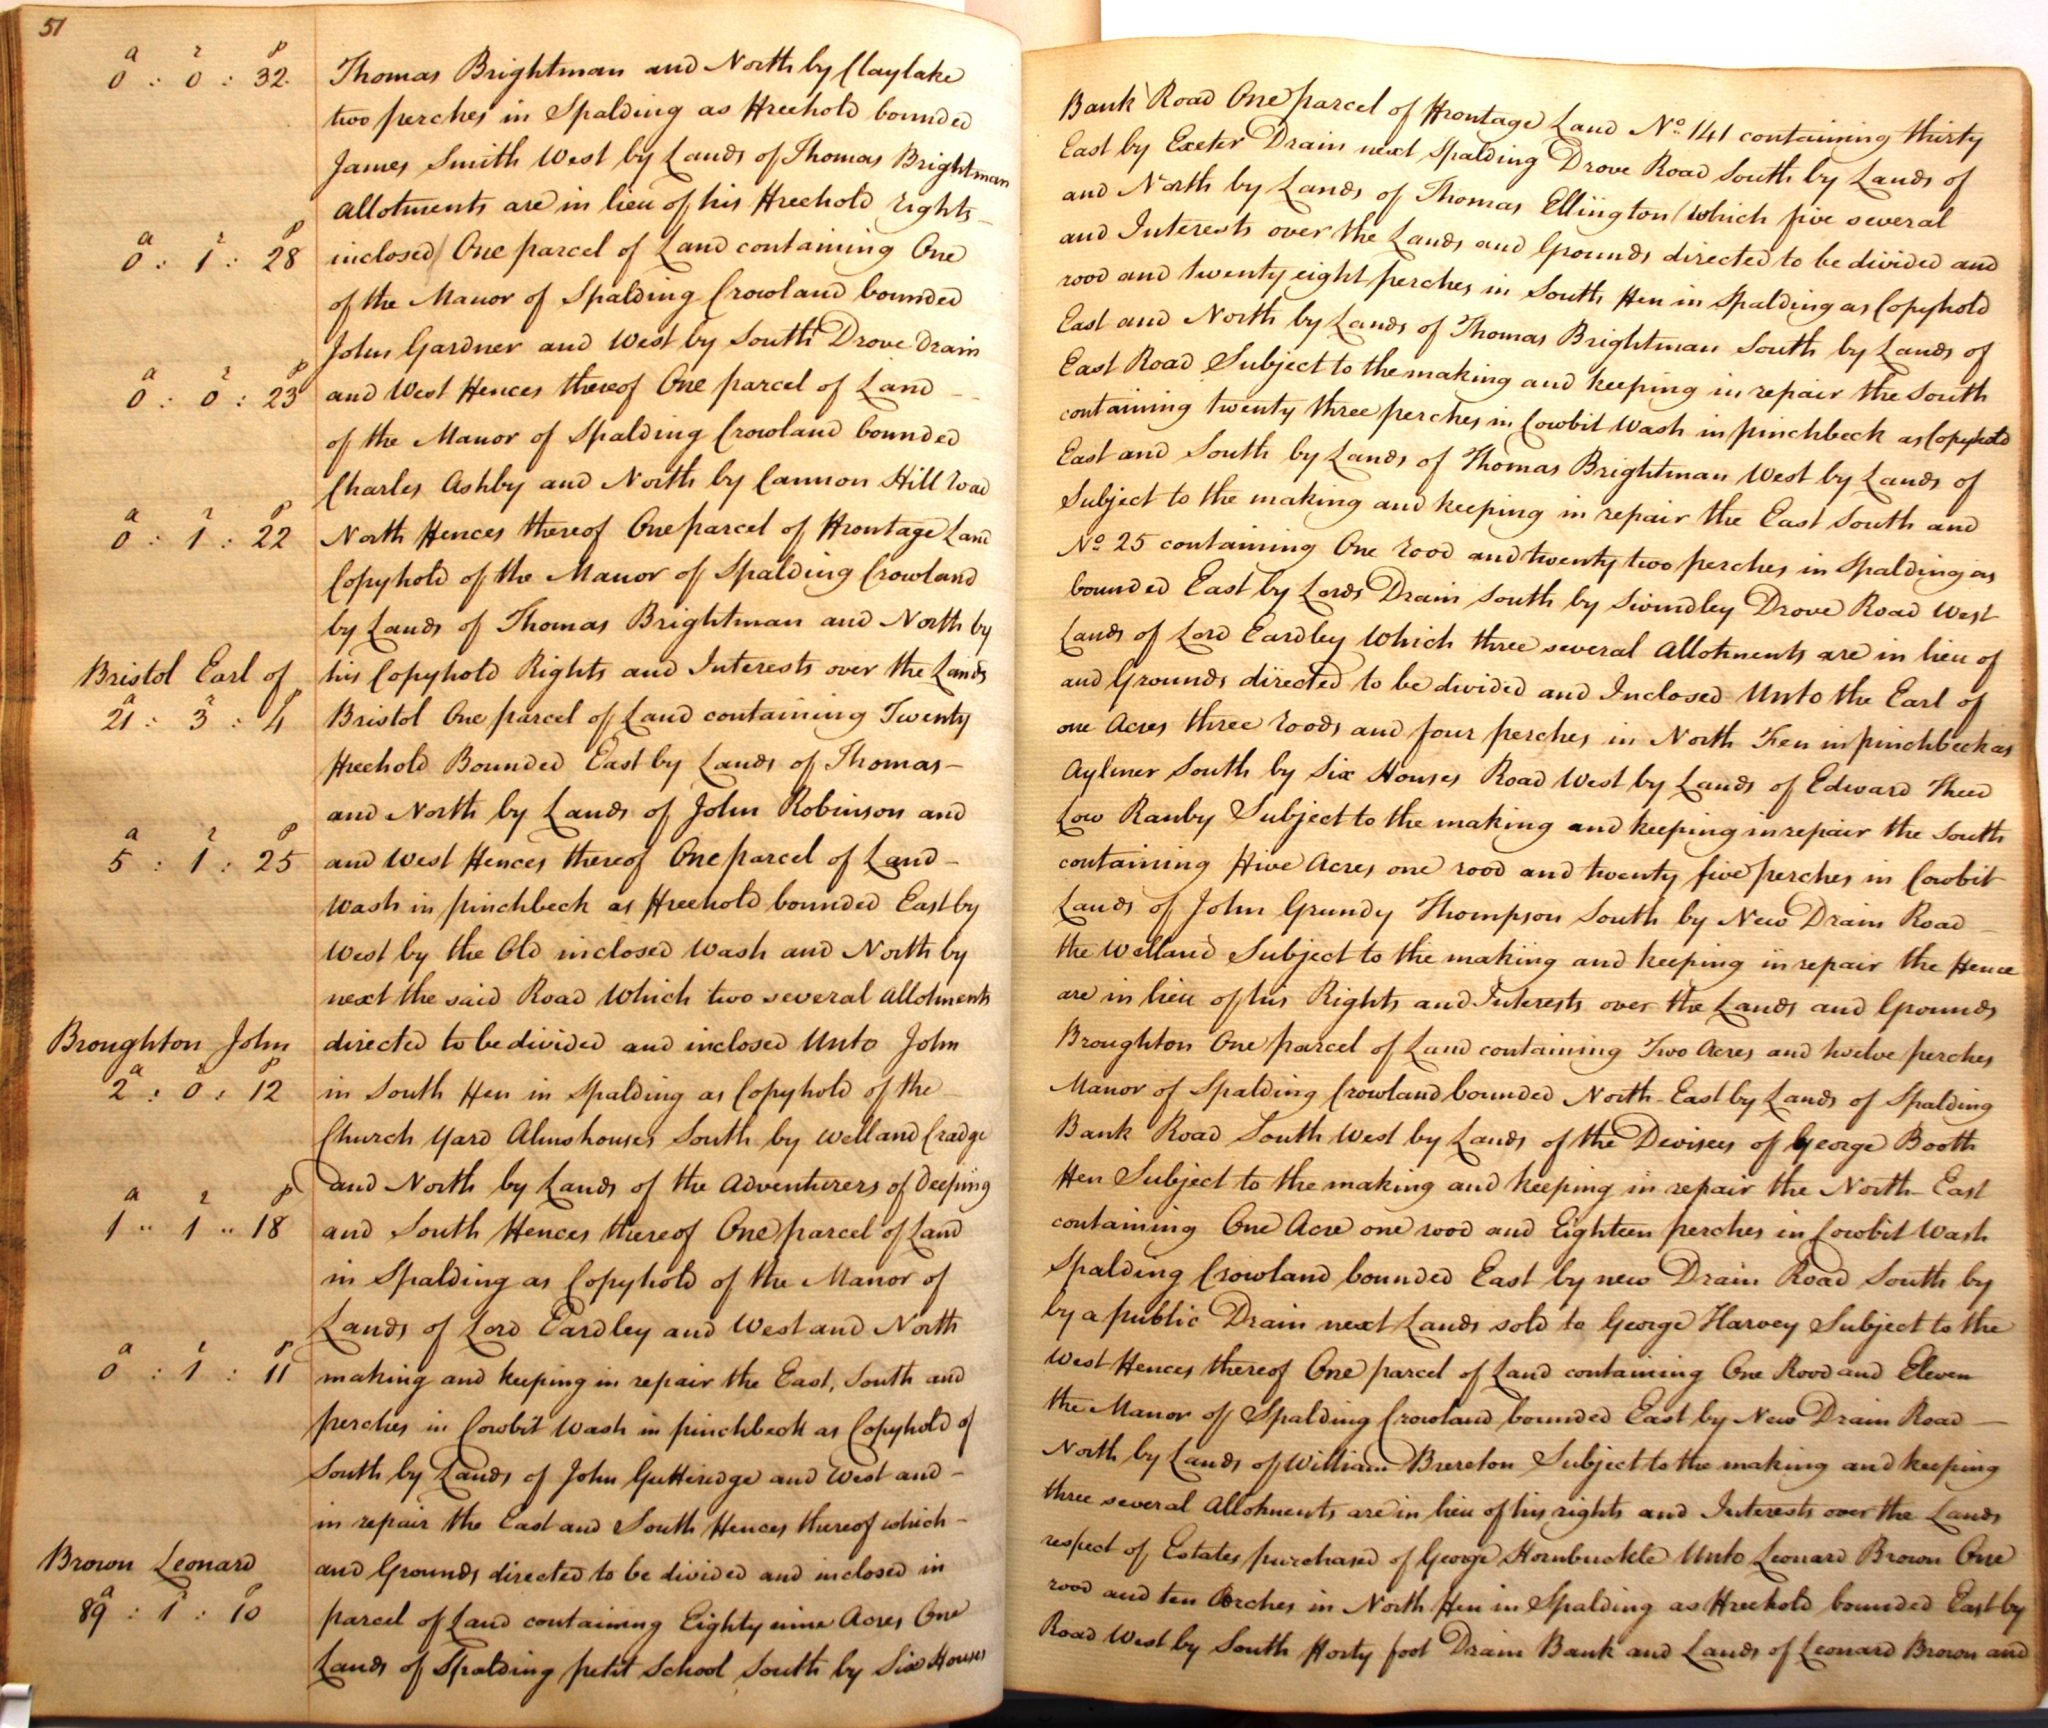 51
a r p
0 : 0 : 32
Thomas Brightman and North by Claylake Bank Road One parcel of Frontage Land No. 141 containing thirty
two perches in Spalding as Freehold bounded East by Exeter Drain next Spalding Drove Road South by Lands of
James Smith West by Lands of Thomas Brightman and North by Lands of Thomas Ellington Which five several
Allotments are in lieu of his Freehold rights and Interests over the Lands and Grounds directed to be divided and
a r p
0 : 1 : 28
inclosed One parcel of Land containing One rood and twenty eight perches in South Fen in Spalding as Copyhold
of the Manor of Spalding Crowland bounded East and North by Lands of Thomas Brightman South by Lands of
John Gardner and West by South Drove drain East Road Subject to the making and keeping in repair the South
a r p
0 : 0 : 23
and West Fences thereof One parcel of Land containing twenty three perches in Cowbit Wash in pinchbeck as Copyhold
of the Manor of Spalding Crowland bounded East and South by Lands of Thomas Brightman West by Lands of
Charles Ashby and North by Cannon Hill road Subject to the making and keeping in repair the East South and
a r p
0 : 1 : 22
North Fences thereof One parcel of Frontage Land No. 25 containing One rood and twenty two perches in Spalding as
Copyhold of the Manor of Spalding Crowland bounded East by Lords Drain South by Swindley Drove Road West
by Lands of Thomas Brightman and North by Lands of Lord Eardley Which three several Allotments are in lieu of
Bristol Earl of
his Copyhold Rights and Interests over the Lands and Grounds directed to be divided and Inclosed Unto the Earl of
a r p
21 : 3 : 4
Bristol One parcel of Land containing Twenty one Acres three roods and four perches in North Fen in pinchbeck as
Freehold Bounded East by Lands of Thomas Aylmer South by Six Houses Road West by Lands of Edward Theed
and North by Lands of John Robinson and Low Ranby Subject to the making and keeping in repair the South
a r p
5 : 1 : 25
and West Fences thereof One parcel of Land containing Five Acres one rood and twenty five perches in Cowbit
Wash in pinchbeck as Freehold bounded East by Lands of John Grundy Thompson South by New Drain Road
West by the Old inclosed Wash and North by the Welland Subject to the making and keeping in repair the Fence
next the said Road Which two several Allotments are in lieu of his Rights and Interests over the Lands and Grounds
Broughton John
directed to be divided and inclosed Unto John Broughton One parcel of Land containing Two Acres and twelve perches
a r p
2 : 0 : 12
in South Fen in Spalding as Copyhold of the Manor of Spalding Crowland bounded North-East by Lands of Spalding
Church Yard Almshouses South by Welland Cradge Bank Road South West by Lands of the Devisees of George Booth
and North by Lands of the Adventurers of Deeping Fen Subject to the making and keeping in repair the North-East
a r p
1 .. 1 .. 18
and South Fences thereof One parcel of Land containing One Acre one rood and Eighteen perches in Cowbit Wash
in Spalding as Copyhold of the Manor of Spalding Crowland bounded East by new Drain Road South by
Lands of Lord Eardley and West and North by a public Drain next Lands sold to George Harvey Subject to the
a r p
0 : 1 : 11
making and keeping in repair the East, South and West Fences thereof One parcel of Land containing One Rood and Eleven
perches in Cowbit Wash in pinchbeck as Copyhold of the Manor of Spalding Crowland bounded East by New Drain Road
South by Lands of John Gutteridge and West and North by Lands of William Brereton Subject to the making and keeping
in repair the East and South Fences thereof which three several Allotments are in lieu of his rights and Interests over the Lands
Brown Leonard
and Grounds directed to be divided and inclosed in respect of Estates purchased of George Hornbuckle Unto Leonard Brown One
a r p
89 : 1 : 10
parcel of Land containing Eighty nine Acres One rood and ten Perches in North Fen in Spalding as Freehold bounded East by
Lands of Spalding petit School South by Six Houses Road West by South Forty foot Drain Bank and Lands of Leonard Brown and